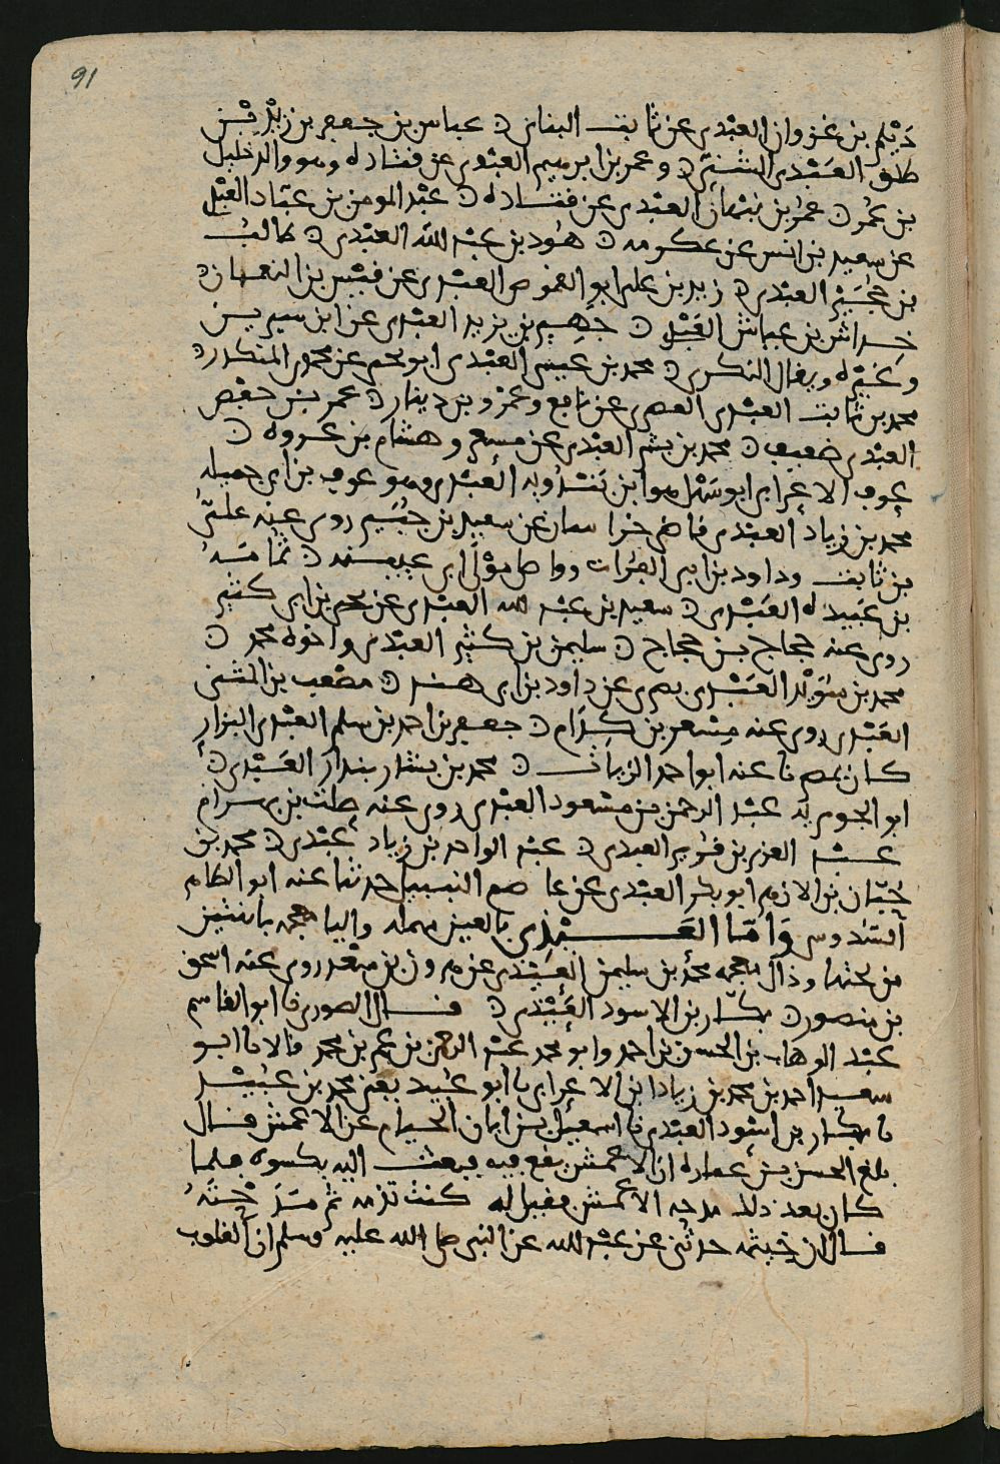 91
ديلم بن غزوان العبدي عن ثابت البناني عباس بن جعفر بن زيد بن
طلق العبدي الشني وعمر بن ابرهيم العبدي عن قتادة وهو والد الخليل
بن عمر عمر بن نبهان العبدي عن قتادة عبد المومن بن عباد العبدي
عن سعيد بن انس عن عكرمه هود بن عبد الله العبدي طالب
بن حجير العبدي زيد بن علي ابو القموص العبدي عن قيس بن النعمان
خداش بن عياش العبدي جهير بن يزيد العبدي عن ابن سيرين
وغيره ويقال النكري محمد بن عيسى العبدي ابو يحيى عن محمد بن المنكدر
محمد بن ثابت العبدي العصري عن نافع وعمرو بن دينار عمر بن حفص
العبدي ضعيف محمد بن بشر العبدي عن مسعر وهشام بن عروه
عوف الاعرابي ابو سهل هو ابن بندويه العبدي وهو عوف بن ابي جميله
محمد بن زياد العبدي قاضي خراسان عن سعيد بن جبير روى عنه علي
بن ثابت وداود بن ابي الفرات وواصل مولى ابي عيينه ثمامه
بن عبيدة العبدي سعيد بن عبد الله العبدي عن يحيى بن ابي كثير
روى عنه حجاج بن حجاج سليمن بن كثير العبدي واخوه محمد
محمد بن العبدي بصري عن داود بن ابي هند مصعب بن المثنى
العبدي روى عنه مسعر بن كدام جعفر بن احمد بن سلم العبدي البزار
كان بمصر نا عنه ابو احمد الزيات محمد بن بشار بندار العبدي
ابو الجويريه عبد الرحمن بن مسعود العبدي روى عنه صلت بن بهرام
عبد العزيز بن قرير العبدي عبد الواحد بن زياد عبدي محمد بن
حيان بن الازهر ابو بكر العبدي عن عاصم النبيل حدثنا عنه ابو الطاهر
السدوسي وأما العيذي بالعين مهمله واليا معجمه باثنتين
من تحتها وذال معجمه محمد بن سليمن العيذي عن هرون بن سعد روى عنه اسحق
بن منصور بكار بن الاسود العيذي قال الصوري نا ابو القاسم
عبد الوهاب بن الحسن بن احمد وابو محمد عبد الرحمن بن عمر بن محمد قالا نا ابو
سعيد احمد بن محمد بن زياد ابن الاعرابي نا ابو عبيد يعني محمد بن عبيد
نا بكار بن اسود العيذي نا اسمعيل بن ابان الخياط عن الاعمش قال
بلغ الحسن بن عماره ان الاعمش يقع فيه فبعث اليه بكسوه فلما
كان بعد ذلك مدحه الاعمش فقيل له كنت تذمه ثم مدحته
قال ان خيثمه حدثني عن عبد الله عن النبي صلى الله عليه وسلم ان القلوب